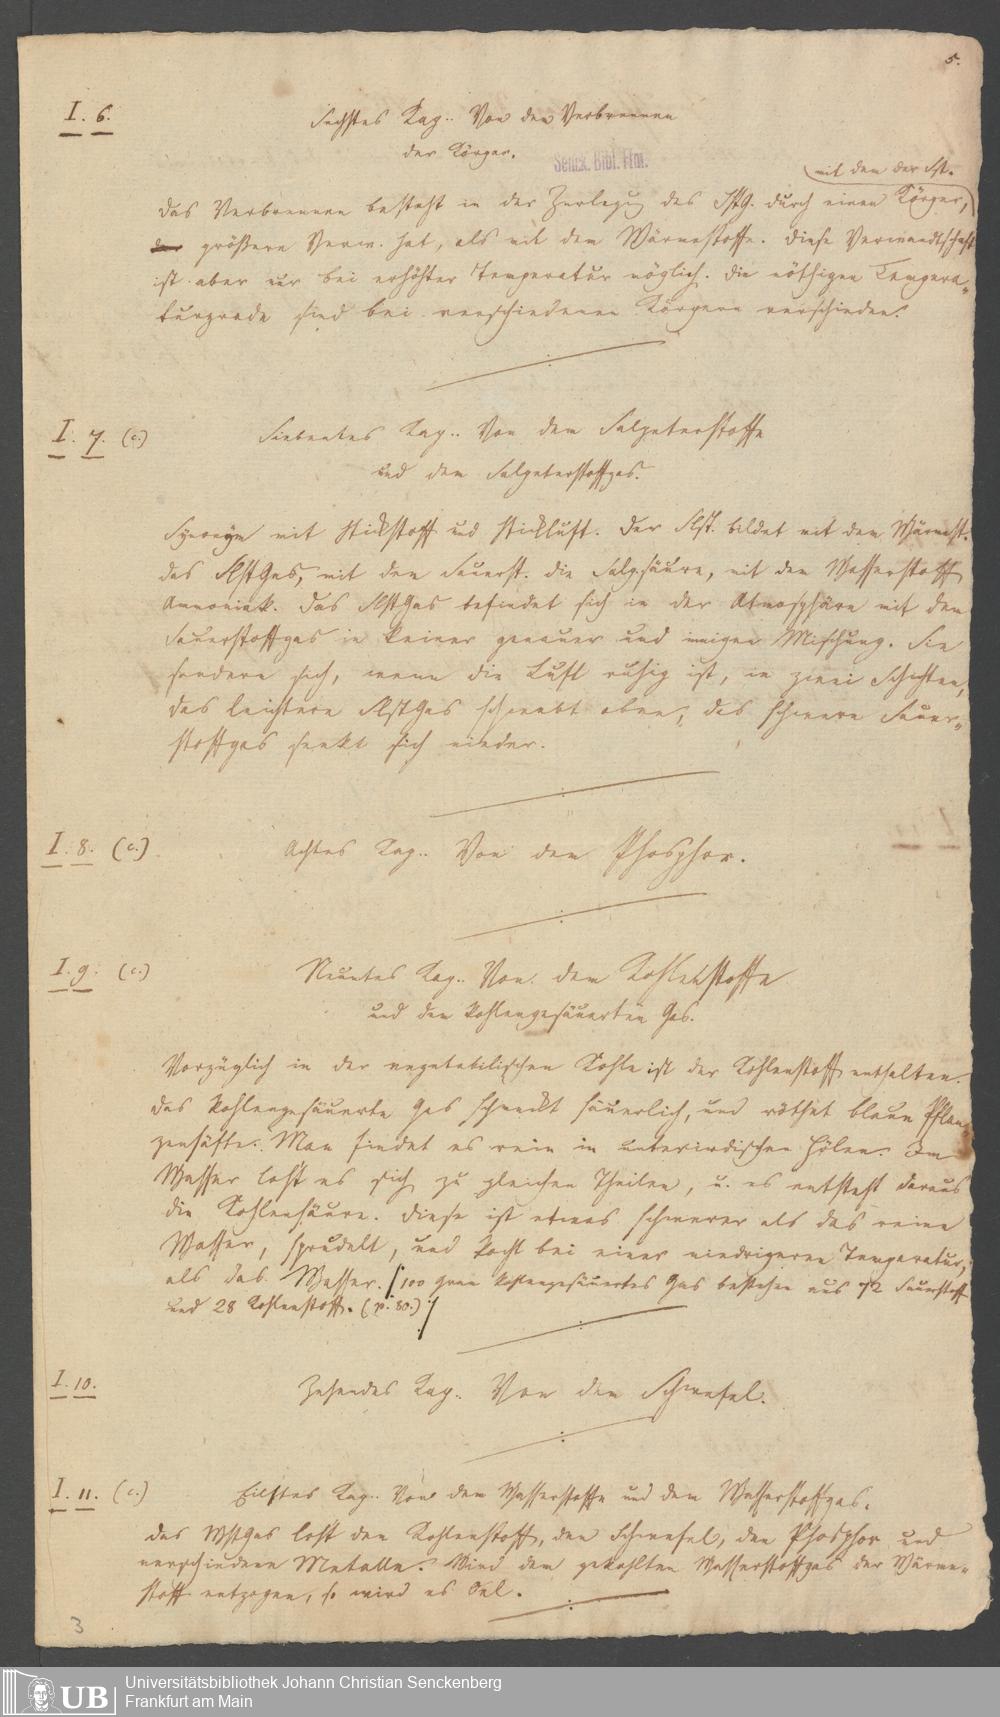 5.
I. 6.
Sechstes Kap.. Von dem Verbrennen
der Körper.
Senck. Bibl. Ffm.
mit dem der Sst.
Das Verbrennen besteht in der Zerlegung des SstG. durch einen Körper,
größere Verw. hat, als mit dem Wärmestoffe. Diese Verwandtschaft
ist aber nur bei erhöhter Temperatur möglich. Die nöthigen Tempera-
turgrade sind bei verschiedenen Körpern verschieden.
I. 7. (c.)
Siebentes Kap.. Von dem Salpeterstoffe
und dem Salpeterstoffgas.
Synonym mit Stickstoff und Stickluft. Der Slst. bildet mit dem Wärmest.
das SlstGas, mit dem Sauerst. die Salpsäure, mit dem Wasserstoff
Ammoniak. Das SlstGas befindet sich in der Atmosphäre mit dem
Sauerstoffgas in keiner genauen und innigen Mischung. Sie
sondern sich, wenn die Luft ruhig ist, in zwei Schichten,
das leichtere SlstGas schwebt oben, das schwere Sauer-
stoffgas senkt sich nieder.
I. 8. (c.)
Achtes Kap.. Von dem Phosphor.
I. 9. (c.)
Neuntes Kap.. Von dem Kohlenstoffe
und dem kohlengesäuerten Gas.
Vorzüglich in der vegetabilischen Kohle ist der Kohlenstoff enthalten.
Das kohlengesäuerte Gas schmeckt säuerlich, und röthet blaue Pflan-
zensäfte. Man findet es rein in unterirdischen Hölen. Im
Wasser löst es sich zu gleichen Theilen, u. es entsteht daraus
die Kohlensäure. Diese ist etwas schwerer als das reine
Wasser, sprudelt, und kocht bei einer niedrigeren Temperatur,
als das Wasser. [100 Gran kohlengesäuertes Gas bestehen aus 72 Sauerstoff
und 28 Kohlenstoff. (p. 80.)]
I. 10.
Zehendes Kap.. Von dem Schwefel.
I. 11. (c.)
Eilftes Kap.. Von dem Wasserstoffe und dem Wasserstoffgas.
Das WstGas löst den Kohlenstoff, den Schwefel, den Phosphor und
verschiedene Metalle. Wird dem gekohlten Wasserstoffgas der Wärme-
stoff entzogen, so wird es Oel.
3
UB
Universitätsbibliothek Johann Christian Senckenberg
Frankfurt am Main